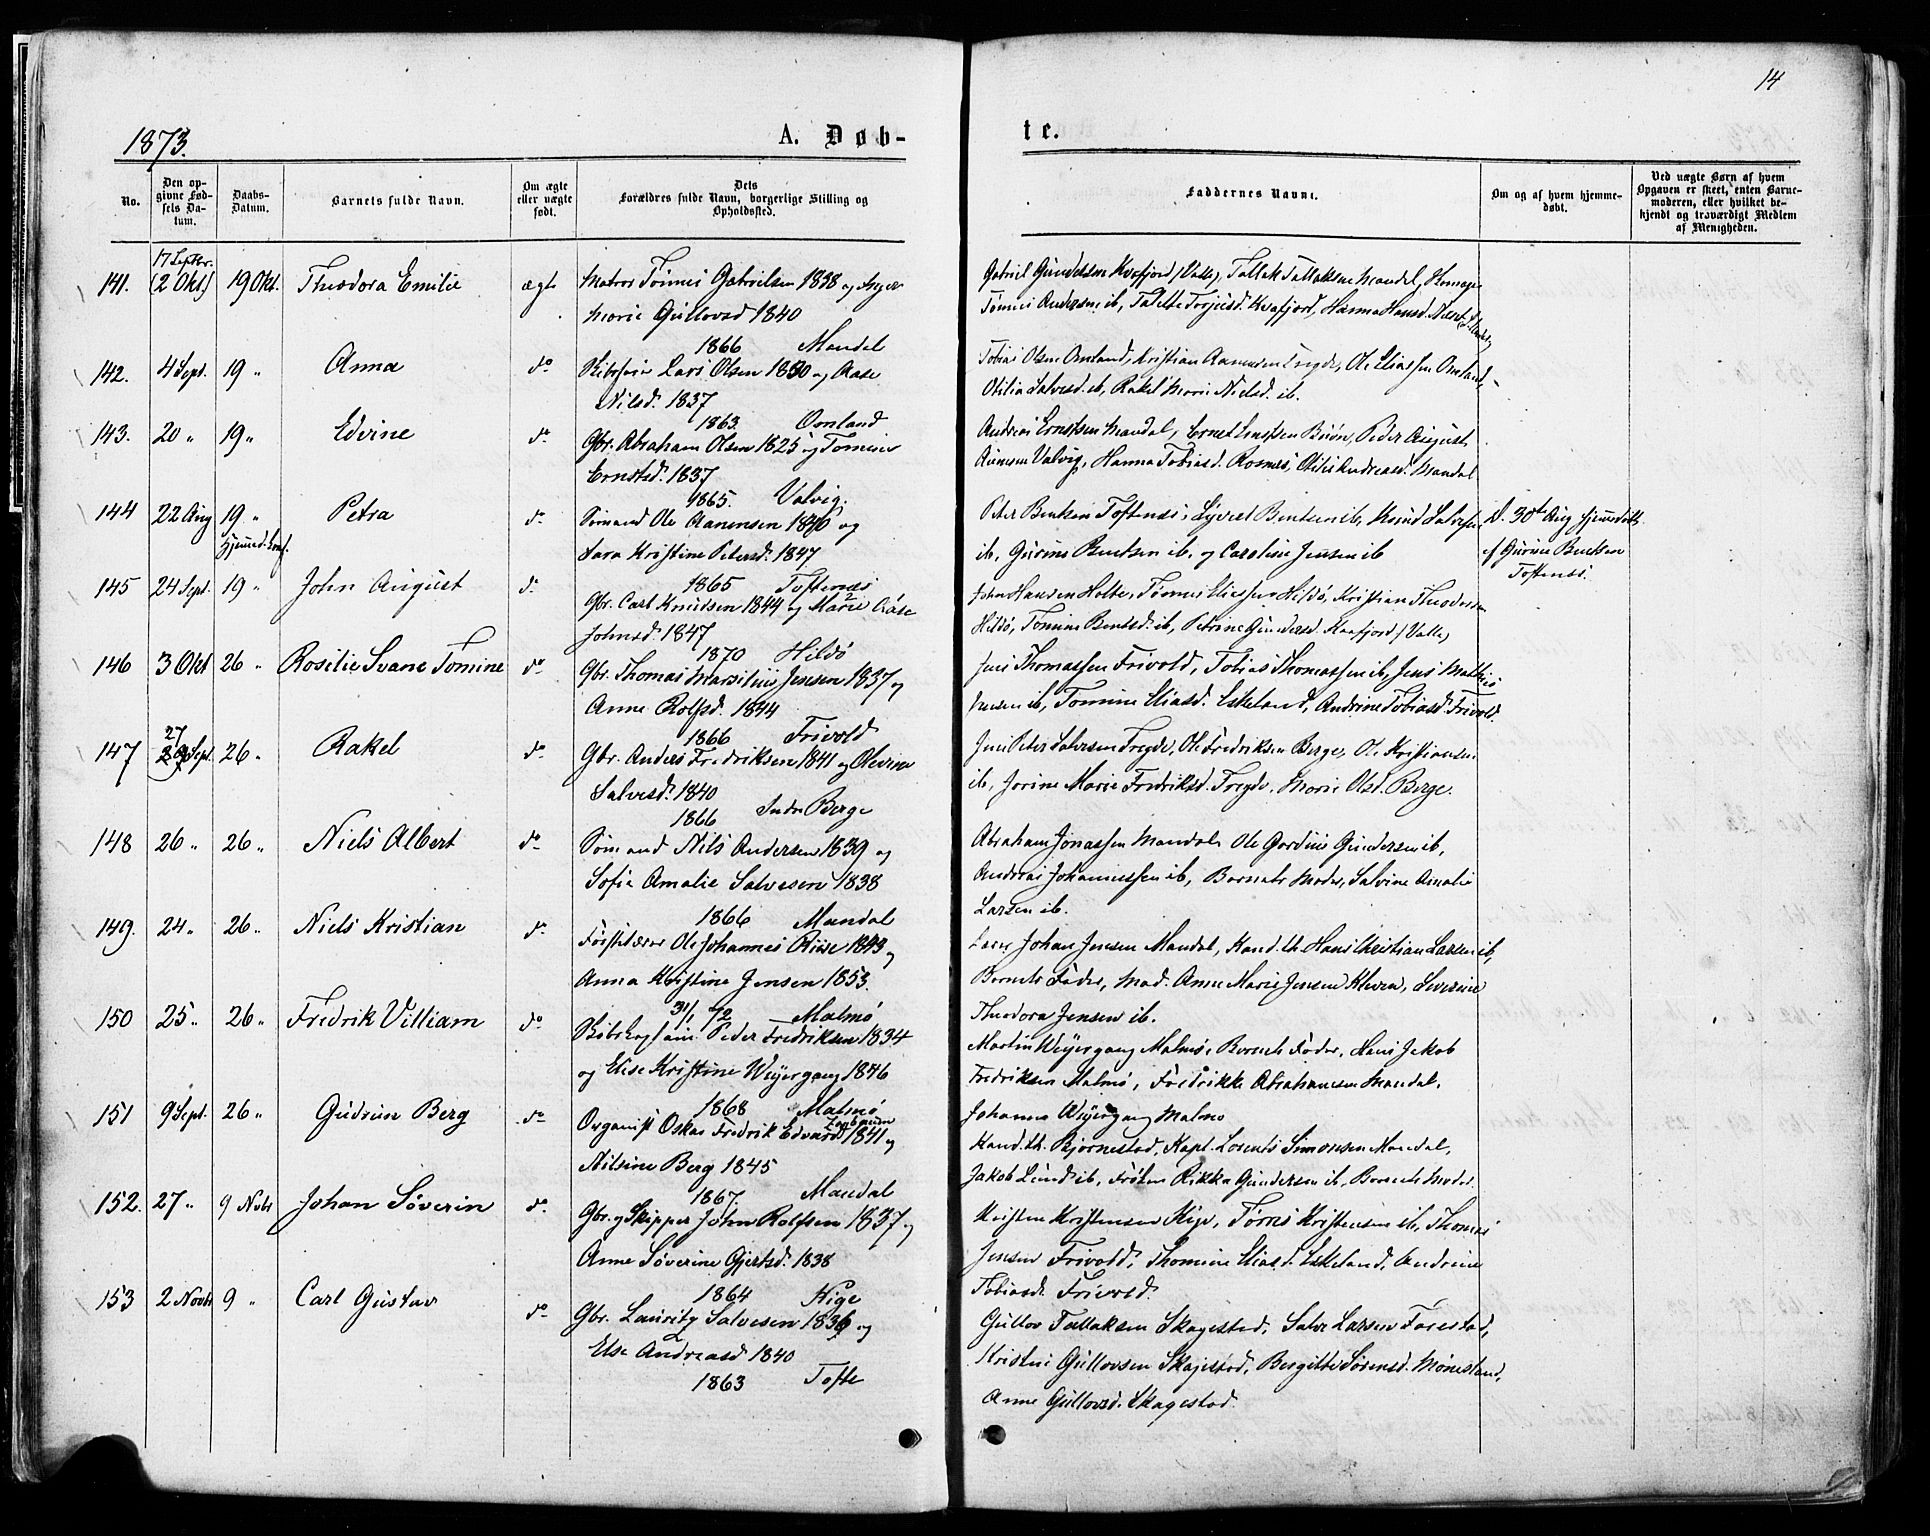 14
1873.
A. Døb-
te.
No.
Den op-
givne Fød-
sels Da-
tum.
Daabs-
Datum.
Barnets fulde Navn.
Om ægte
eller uægte
født.
Dets
Forældres fulde Navn, borgerlige Stilling og
Opholdssted.
Faddernes Navne.
Om og af hvem hjemme-
døbt.
Ved uægte Børn af hvem
Opgaven er skeet, enten Barne-
moderen, eller hvilket be-
kjendt og troværdigt Medlem
af Menigheden.
17 Septbr.
141. (2 Okt) 19 Okt. Theodora Emilie ægte Matros Tønnes Gabrielsen 1838 og Inger
Marie Gullovsd 1840
1866 Mandal
Gabriel Gundersen Kvafjord / Valle, Tallak Tallaksen Mandal,
Tønnes Andersen ib, Talette Torjusd. Kvafjord, Hanna Hansd.
142. 4 Sept. 19 " Anna do Lars Olsen 1830 og Aase
Nilsd. 1837
1863. Omland
Tobias Olsen Omland, Kristian Aanensen Tregde, Ole Eliassen Omland,
Otilia Salvesd. ib, Rakel Marie Nielsd. ib.
143. 20 " 19 " Edvine do Gbr. Abraham Olsen 1825 og Tomine
Ernstsd. 1837
1865. Valvig.
Andreas Ernstsen Mandal, Ernst Ernstsen Buøn, Peder August
Aanesen Valvig, Hanna Tobiasd. Rosnes, Otilie Andreasd. Mandal
144 22 Aug 19 " Petra do Sømand Ole Aanensen 1846 og
Hjemmed. conf.
Sara Kristine Petersd. 1847
1865 Toftenes
Peter Bentsen Toftenes, Syvert Bentsen ib, Knud Salvesen
ib, Gurine Bentsen ib, og Caroline Jensen ib
d. 30te Aug hjemmedøbt
af Gurine Bentsen
Toftenes.
145 24 Sept. 19 " John August do Gbr. Carl Knudsen 1844 og Marie Aase
Johnsd. 1847
1870 Hildø
John Hansen Holte, Tønnes Eliassen Hildø, Kristian Theodorsen
Hildø, Tomine Bentsd. ib, Petrine Gundersd. Kvafjord / Valle,
146 3 Okt 26 " Rosilie Svane Tomine do Gbr. Thomas Marsilius Jensen 1837 og
Anne Rolfsd. 1844
1866 Frivold
Jens Thomassen Frivold, Tobias Thomassen ib, Jens Mathias
Jensen ib, Tomine Eliasd. Eskeland, Andrine Tobiasd. Frivold.
27
147 Sept. 26 " Rakel do Gbr. Anders Fredriksen 1841 og Olevine
Salvesd. 1840
1866 Indre Berge
Jens Peter Salvesen Tregde, Ole Fredriksen Berge, Ole Kristiansen
ib, Jorine Marie Fredriksd. Tregde, Marie Olsd. Berge.
148 26 " 26 " Niels Albert do Sømand Nils Andersen 1839 og
Sofie Amalie Salvesen 1838
1866 Mandal
Abraham Jonassen Mandal, Ole Gordius Gundersen ib,
Andreas Johannessen ib, Barnets Moder, Salvine Amalie
Larsen ib.
149. 24 " 26 " Niels Kristian do Førstelærer Ole Johannes Riise 1843 og
Anna Kristine Jensen 1853.
31/1 72 Malmø
Johan Jensen Mandal, Kand. th. Hans Christian Larsen ib,
Barnets Fader, Mad. Anne Marie Jensen Kleven, Severine
Theodora Jensen ib.
150 25 " 26 " Fredrik Villiam do Skibskaptain Peder Fredriksen 1834
og Elise Kristine Weyergang 1846
1868 Malmø
Martin Weyergang Malmø, Barnets Fader, Hans Jakob
Fredriksen Malmø, Fredrikke Abrahamsen Mandal,
Johanna Weyergang Malmø
151 9 Sept. 26 " Gudrun Berg do Organist Oskar Fredrik Edvard 1841 og
Nilsine Berg 1845
1867. Mandal
Kand. th. Bjørnestad, Kapt. Lorents Simonsen Mandal,
Jakob Lund ib, Frøken Rikka Gundersen ib, Barnets Moder.
152. 27 " 9 Novbr Johan Søverin do Gbr. og Skipper John Rolfsen 1837 og
Anne Søverine Gjertsd. 1838
1864 Kige
Kristen Kristensen Kige, Tørres Kristensen ib, Thomas
Jensen Frivold, Thomine Eliasd. Eskeland, Andrine
Tobiasd. Frivold.
153 2 Novbr 9 " Carl Gustav do Gbr. Lauritz Salvesen 1836 og
Else Andreasd 1840
1863 Tofte
Gullov Tallaksen Skagestad, Salve Larsen Farestad,
Kristine Gullovsen Skagestad, Bergitte Sørensd. Mønestand,
Anne Gullovsd. Skagestad.